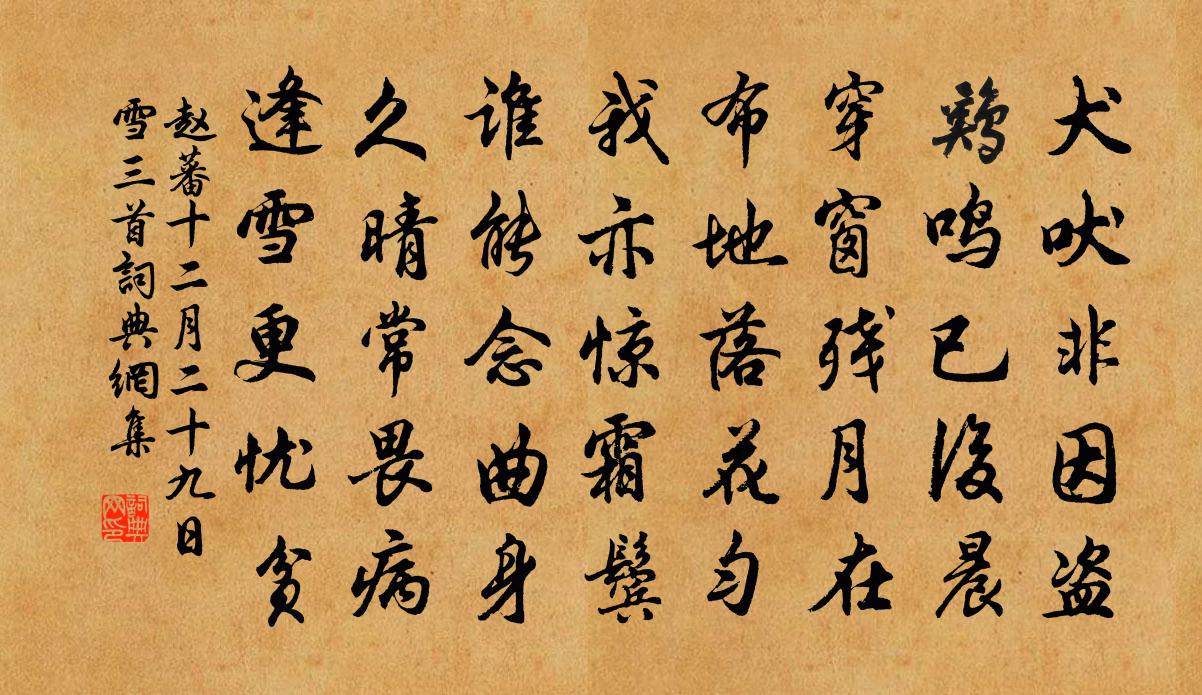 犬吠非因盗
鷄鸣已後晨
穿窗残月在
布地落花匀
我亦惊霜鬓
谁能念曲身
久晴常畏病
逢雪更忧贫
赵蕃十二月二十九日
雪三首詞典網集
詞典網印